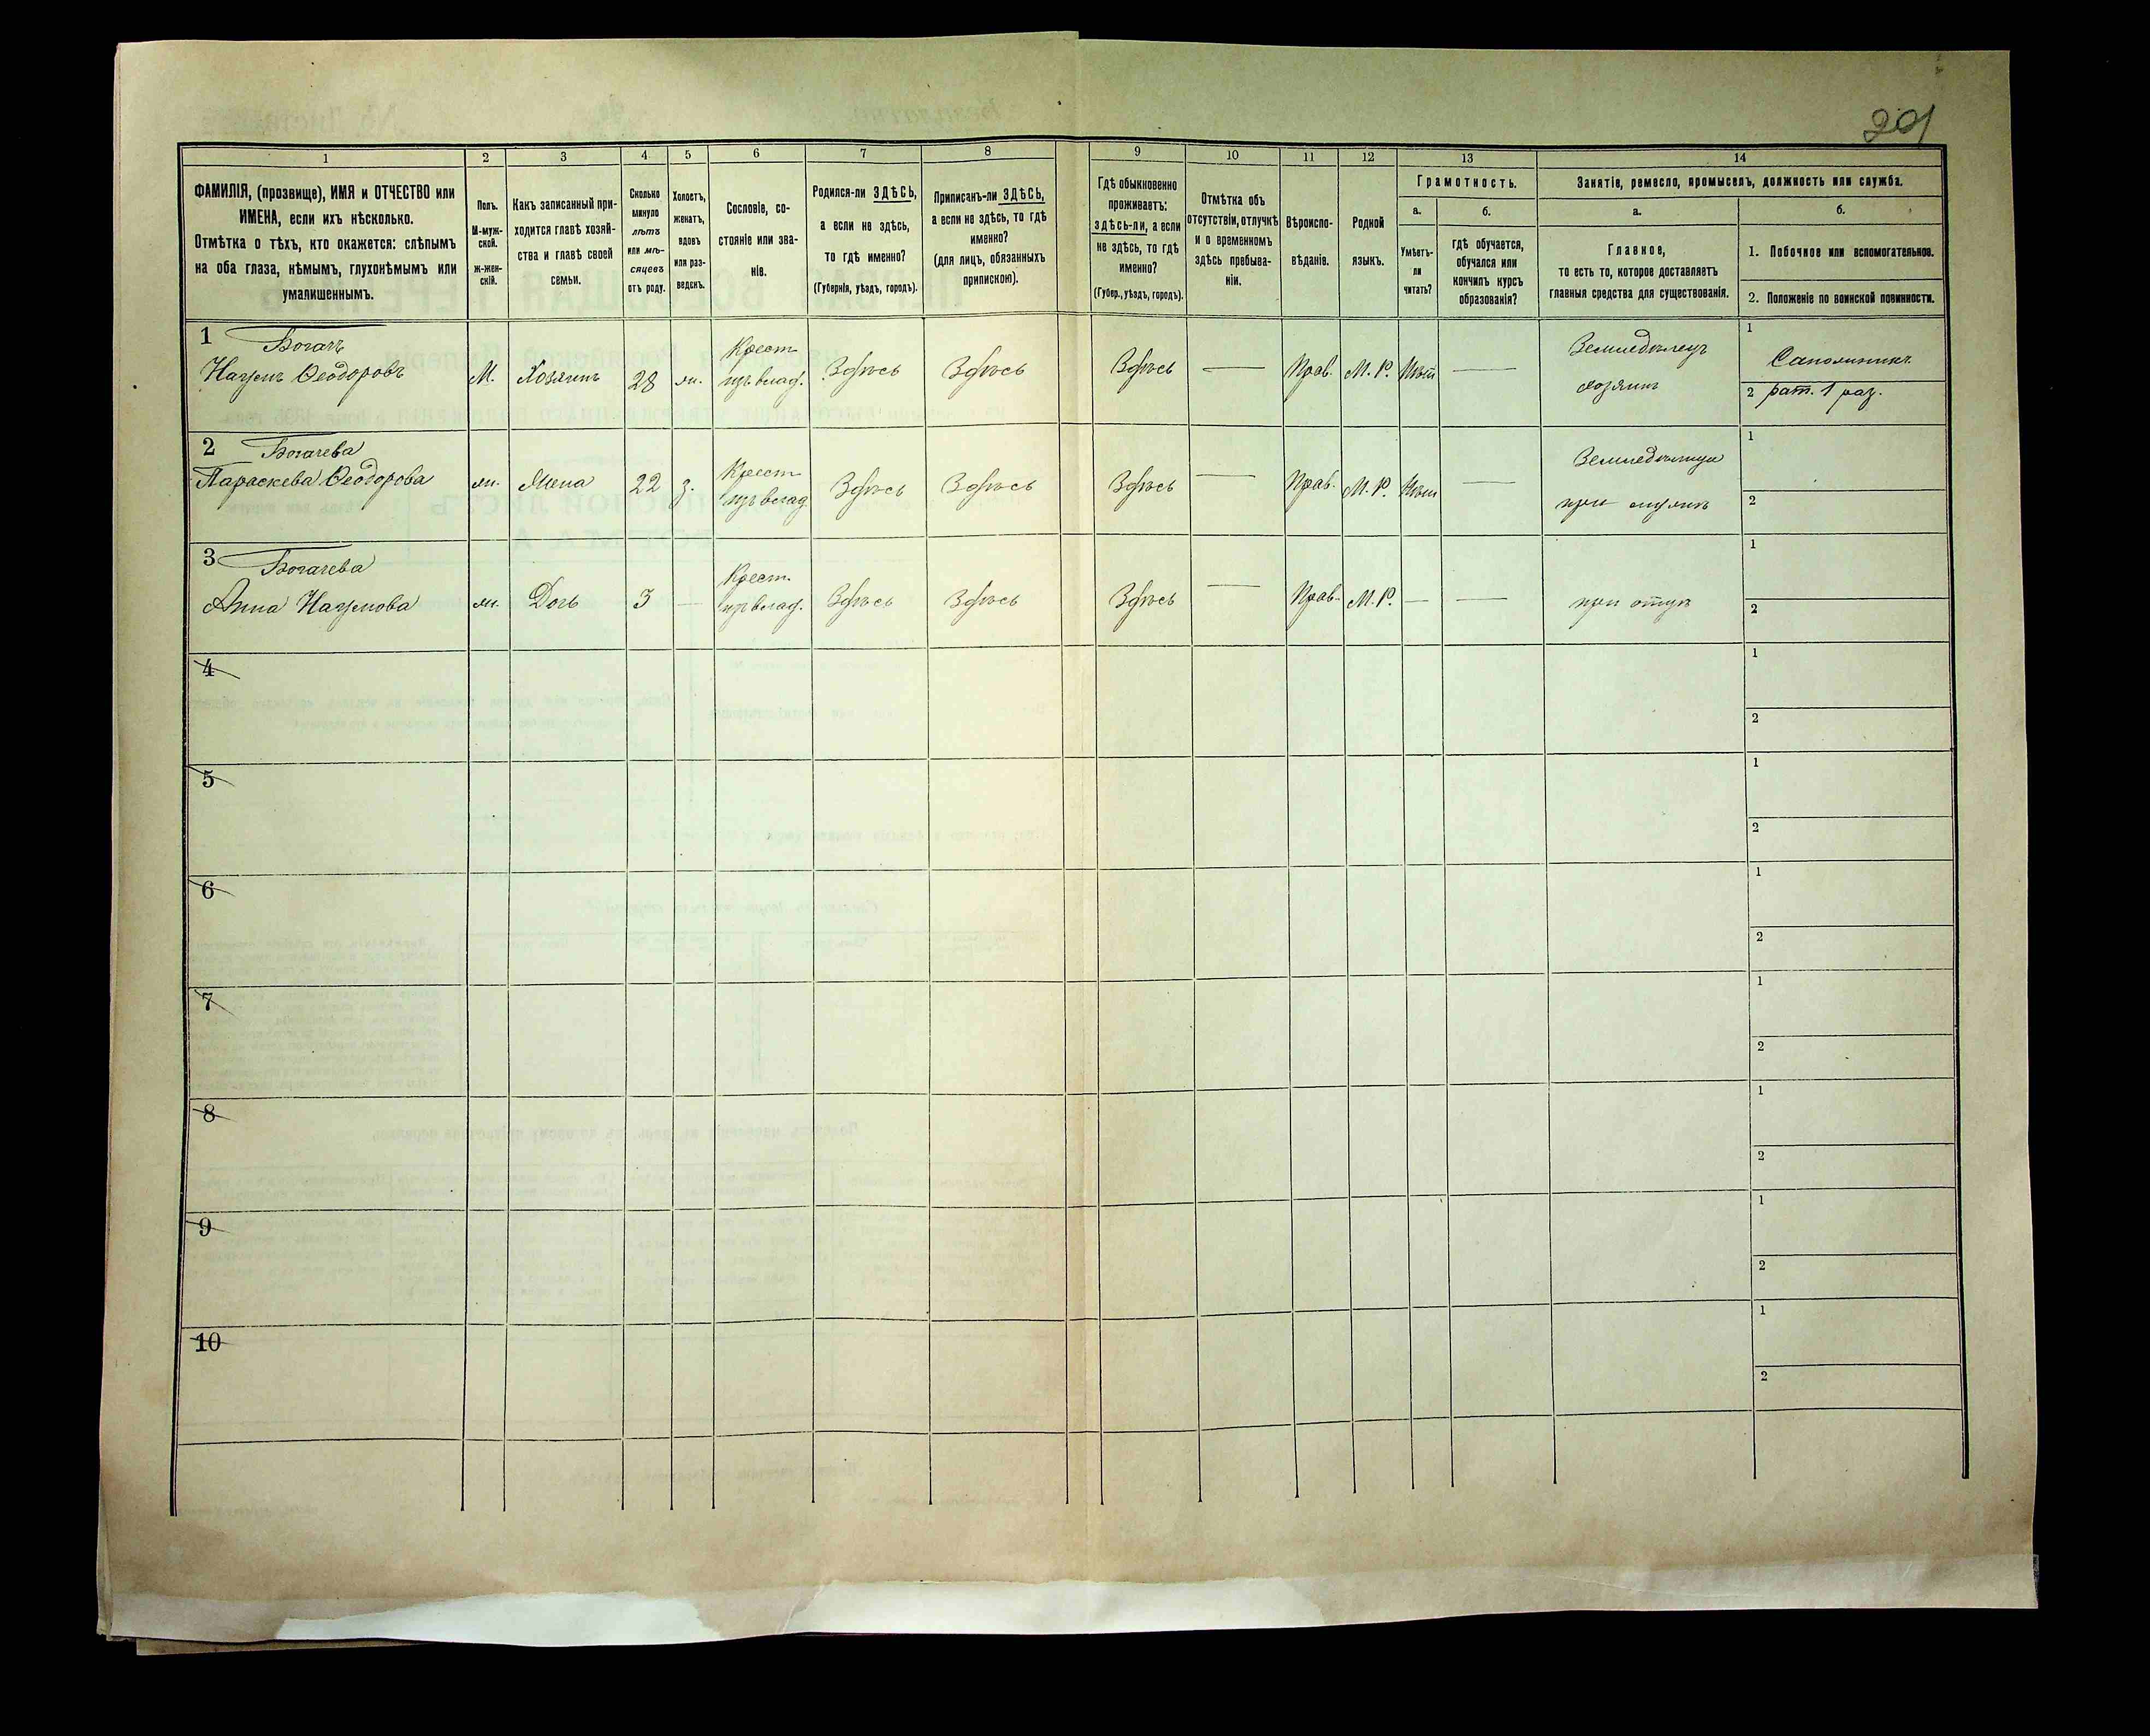 201
1
2
3
4
5
6
7
8
9
10
11
12
13
14
ФАМИЛІЯ, (прозвище), ИМЯ и ОТЧЕСТВО или
ИМЕНА, если ихъ нѣсколько.
Отмѣтка о тѣхъ, кто окажется: слѣпымъ
на оба глаза, нѣмымъ, глухонѣмымъ или
умалишеннымъ.
Полъ.
М-муж-
ской.
ж-жен-
скій.
Какъ записанный при-
ходится главѣ хозяй-
ства и главѣ своей
семьи.
Сколько
минуло
лѣтъ
или мѣ-
сяцевъ
отъ роду.
Холостъ,
женатъ,
вдовъ
или раз-
ведснъ.
Сословіе, со-
стояніе или зва-
ніе.
Родился-ли ЗДѢСЬ,
а если не здѣсь,
то гдѣ именно?
(Губернія, уѣздъ, городъ).
Приписанъ-ли ЗДѢСЬ,
а если не здѣсь, то гдѣ
именно?
(для лицъ, обязанныхъ
припискою).
Гдѣ обыкновенно
проживаетъ:
здѣсь-ли, а если
не здѣсь, то гдѣ
именно?
(Губер., уѣздъ, городъ).
Отмѣтка объ
отсутствіи, отлучкѣ
и о временномъ
здѣсь пребыва-
ніи.
Вѣроиспо-
вѣданіе.
Родной
языкъ.
Грамотность.
а.
Умѣетъ-
ли
читать?
б.
гдѣ обучается,
обучался или
кончилъ курсъ
образованія?
Занятіе, ремесло, промыселъ, должность или служба.
а.
Главное,
то есть то, которое доставляетъ
главныя средства для существованія.
б.
1. Побочное или вспомогательное.
2. Положеніе по воинской повинности.
1
Богачъ
Наумъ Ѳеодоровъ
М.
Хозяинъ
28
ж.
Крест.
изъ влад.
Здѣсь
Здѣсь
Здѣсь
—
Прав.
М. Р.
Нѣт
—
Земледѣлецъ
хозяинъ
1
Сапожникъ
2 рат. 1 раз.
2
Богачева
Параскева Ѳеодорова
ж.
Жена
22
з.
Крест
изъ влад
Здѣсь
Здѣсь
Здѣсь
—
Прав.
М. Р.
Нѣт
—
Земледѣлица
при мужѣ
1
2
3
Богачева
Анна Наумова
ж.
Дочь
3
—
Крест.
изъ влад.
Здѣсь
Здѣсь
Здѣсь
—
Прав.
М. Р.
—
—
при отцѣ
1
2
4
1
2
5
1
2
6
1
2
7
1
2
8
1
2
9
1
2
10
1
2